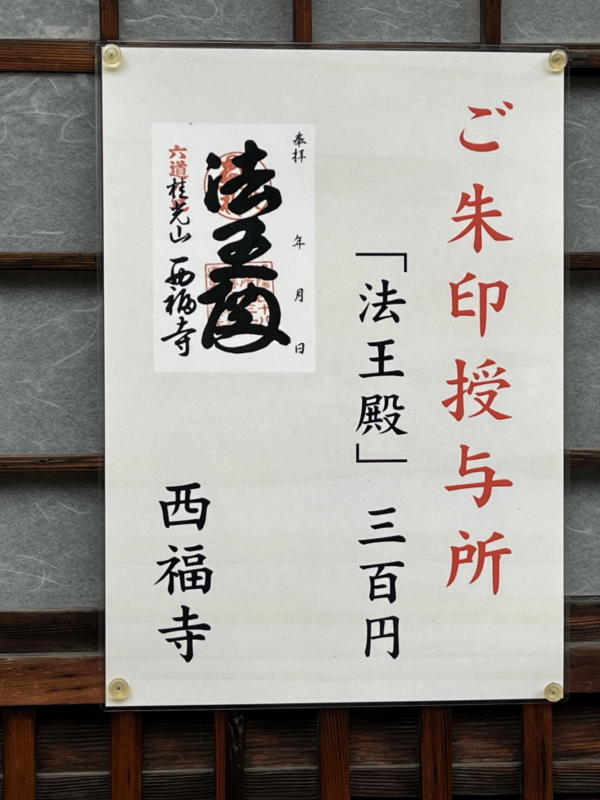 ご朱印授与所
「法王殿」 三百円
奉拝 年 月 日
法王殿
六道桂光山 西福寺
西福寺